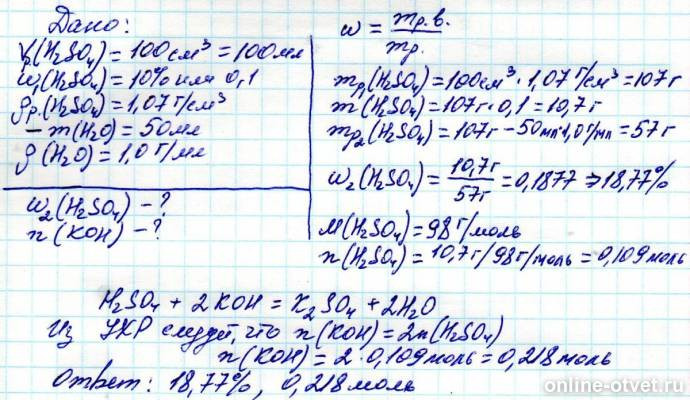 Дано:
Vр(H₂SO₄) = 100 см³ = 100 мл
w₁(H₂SO₄) = 10% или 0,1
ρр.(H₂SO₄) = 1,07 г/см³
– m(H₂O) = 50 мл
ρ(H₂O) = 1,0 г/мл
w₂(H₂SO₄) – ?
n(KOH) – ?
w = mр.в. / mр.
mр₁(H₂SO₄) = 100 см³ · 1,07 г/см³ = 107 г
m(H₂SO₄) = 107 г · 0,1 = 10,7 г
mр₂(H₂SO₄) = 107 г – 50 мл · 1,0 г/мл = 57 г
w₂(H₂SO₄) = 10,7 г / 57 г = 0,1877 ⇒ 18,77%
M(H₂SO₄) = 98 г/моль
n(H₂SO₄) = 10,7 г / 98 г/моль = 0,109 моль
H₂SO₄ + 2KOH = K₂SO₄ + 2H₂O
Из УХР следует, что n(KOH) = 2n(H₂SO₄)
n(KOH) = 2 · 0,109 моль = 0,218 моль
Ответ: 18,77%, 0,218 моль
online-otvet.ru